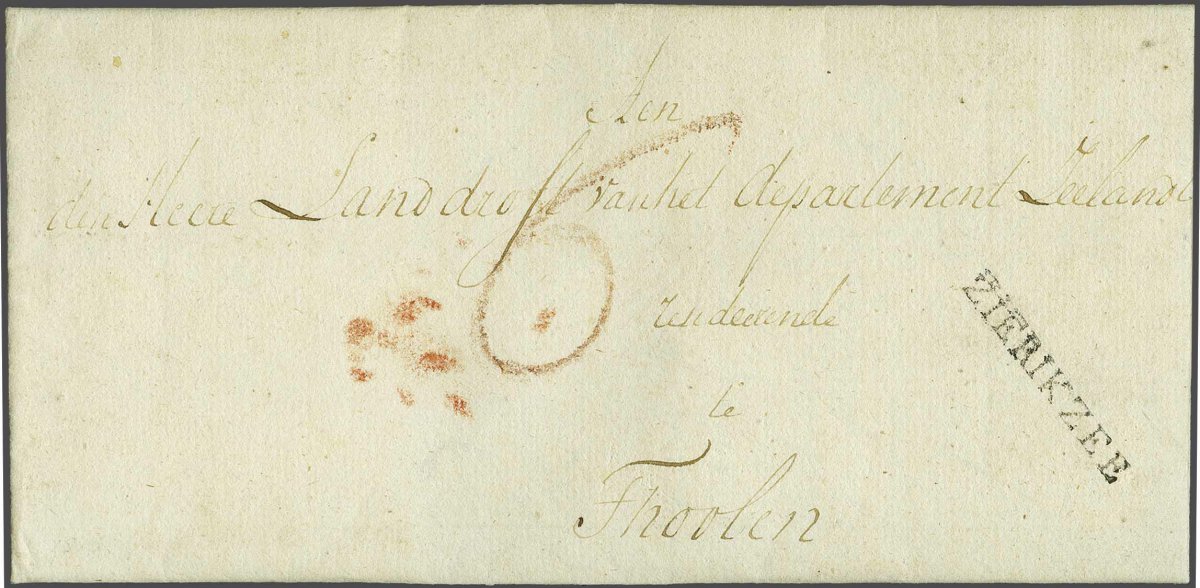 Aen
den Heere Landdrost van het departement Zeeland
6
resideerende
te
Tholen
ZIERIKZEE